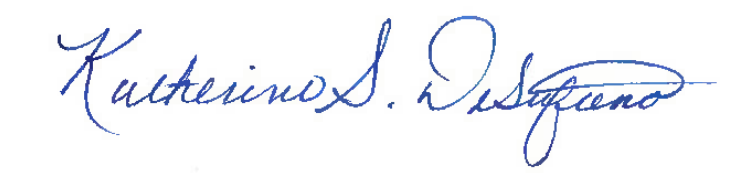 Katherine S. DeStefano